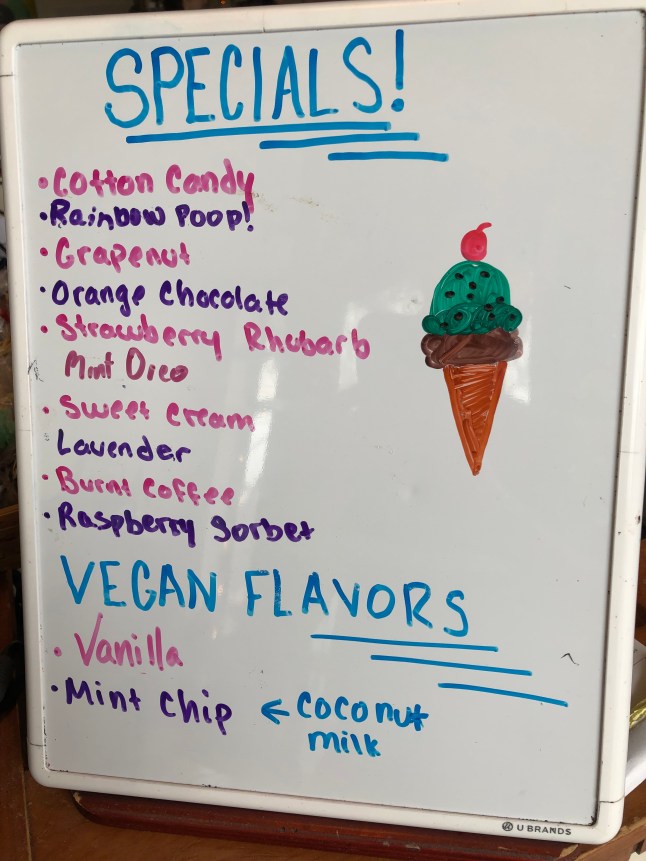 SPECIALS!
• Cotton Candy
• Rainbow Poop!
• Grapenut
• Orange Chocolate
• Strawberry Rhubarb
Mint Oreo
• Sweet Cream
Lavender
• Burnt Coffee
• Raspberry Sorbet
VEGAN FLAVORS
• Vanilla
• Mint Chip ← coconut
milk
U BRANDS